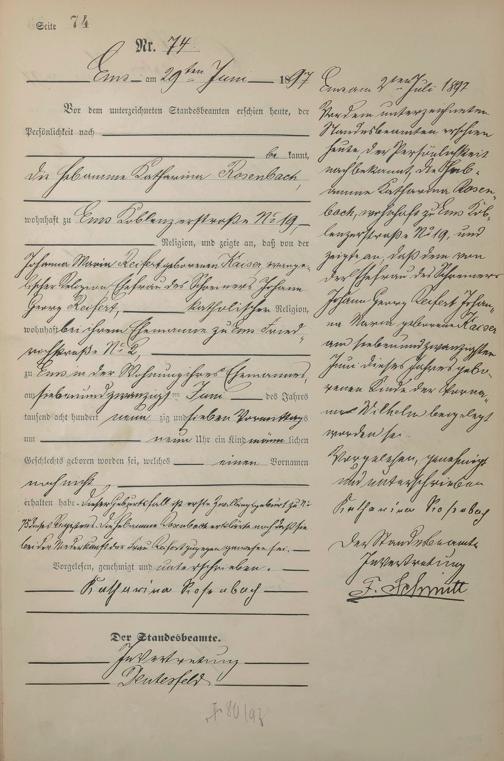 Seite 74
Nr. 74
Ems am 29ten Juni 1897
Vor dem unterzeichneten Standesbeamten erschien heute, der
Persönlichkeit nach
be kannt,
die Hebamme Katharina Rosenbach,
wohnhaft zu Ems Koblenzerstraße No 19,
Religion, und zeigte an, daß von der
Johanna Maria Reifert geborenen Kaiser, evange-
lischer Religion Ehefrau des Schreiners Johann
Georg Reifert, katholischer Religion,
wohnhaft bei ihrem Ehemanne zu Ems Fried-
richstraße No 2,
zu Ems in der Wohnung ihres Ehemannes,
am siebenundzwanzigsten Juni des Jahres
tausend acht hundert neun zig und sieben Vormittags
um neun Uhr ein Kind männ lichen
Geschlechts geboren worden sei, welches einen Vornamen
noch nicht
erhalten habe. Dieser Geburtsfall ist erste Zwillingsgeburt zu No
75 dieses Registers. Die Hebamme Rosenbach erklärte noch daß sie
bei der Niederkunft der Frau Reifert zugegen gewesen sei.
Vorgelesen, genehmigt und unterschrieben.
Katharina Rosenbach
Der Standesbeamte.
In Vertretung
Ems am 2ten Juli 1897
Vor dem unterzeichneten
Standesbeamten erschien
heute der Persönlichkeit
nach bekannt, die Heb-
amme Katharina Rosen-
bach, wohnhaft zu Ems Kob-
lenzerstraße No 19, und
zeigte an, daß dem von
der Ehefrau des Schreiners
Johann Georg Reifert Johan-
na Maria geborenen Kaiser
am siebenundzwanzigsten
Juni dieses Jahres gebo-
renen Kinde der Vorna-
me Wilhelm beigelegt
worden sei.
Vorgelesen, genehmigt
und unterschrieben
Katharina Rosenbach
Der Standesbeamte
In Vertretung
F. Schmitt